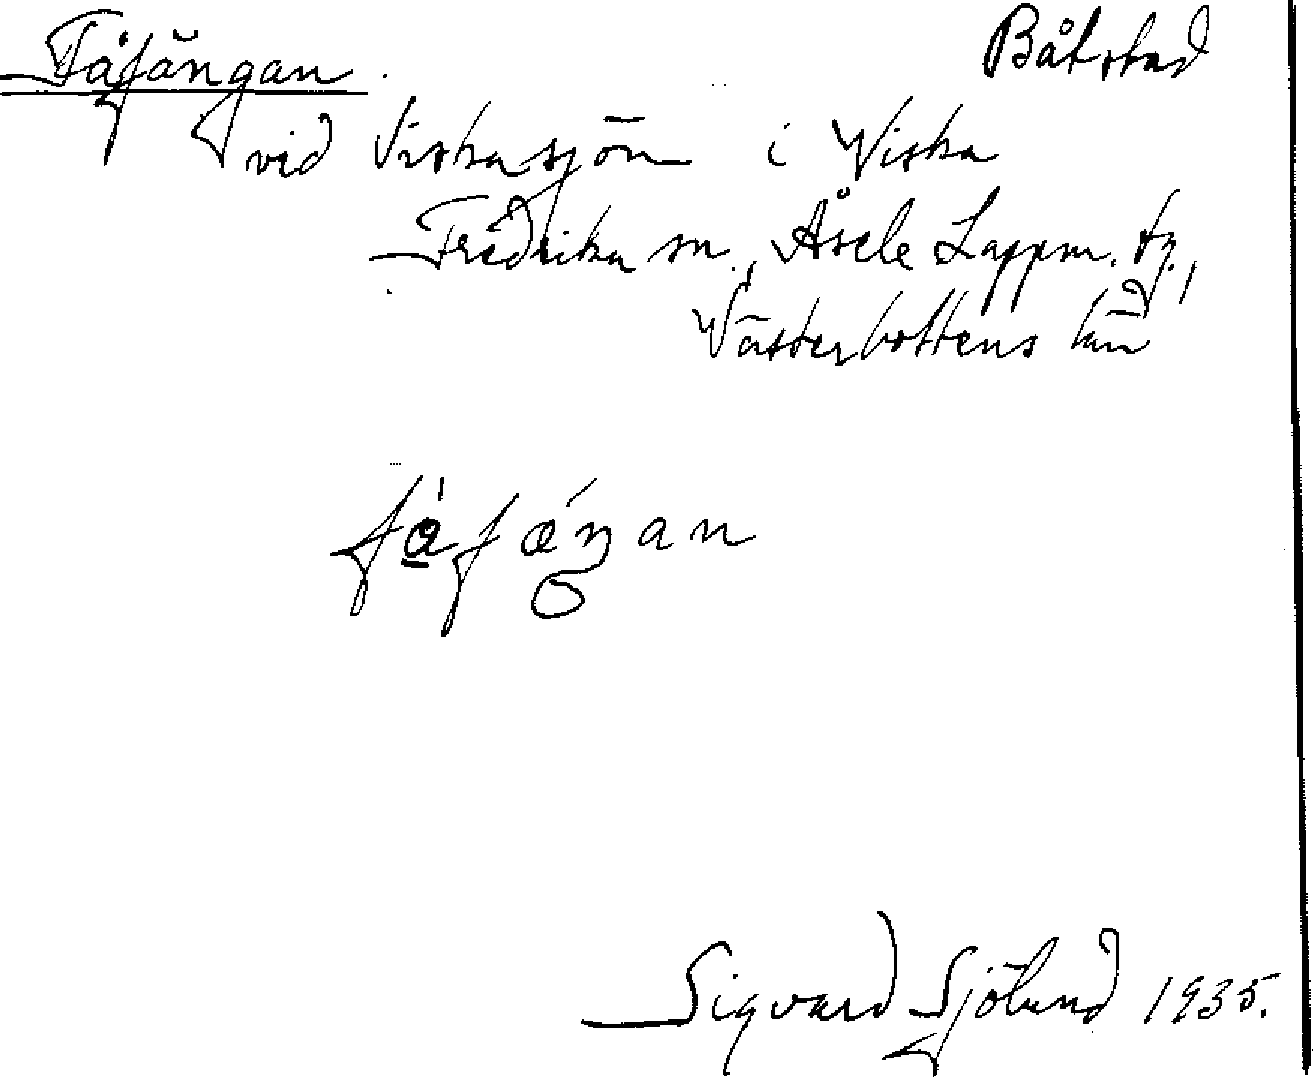 Fåfängan. Båtstad
vid Viskasjön i Viska
Fredrika sn., Åsele Lappm. tg.,
Västerbottens län
Sigvard Sjölund 1935.